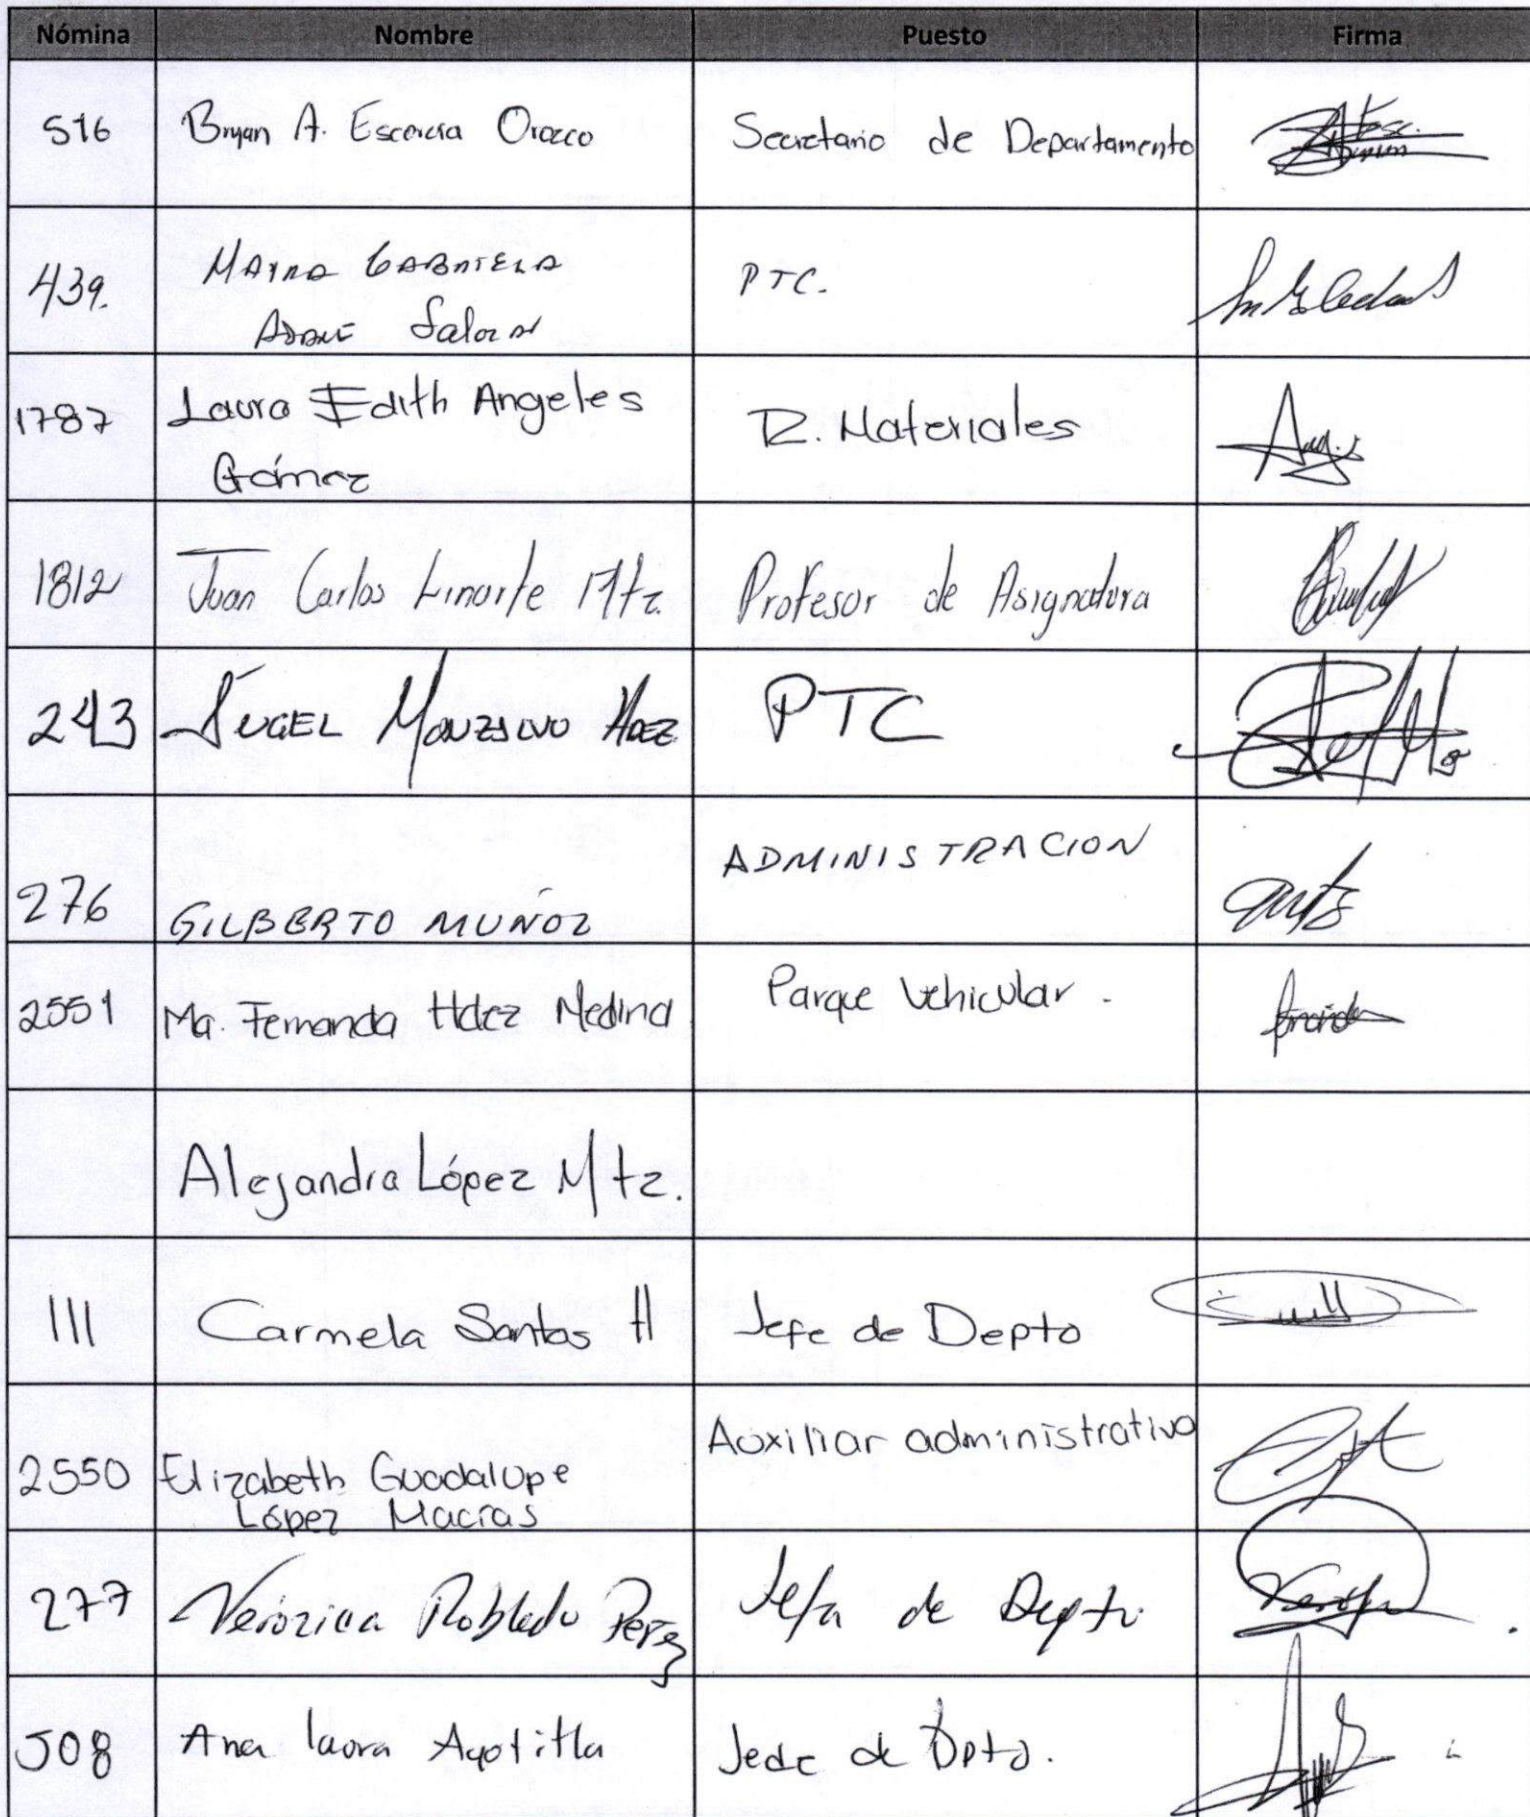 Nómina Nombre Puesto Firma
516 Bryan A. Escorcia Orozco Secretario de Departamento
439. MAYRA GABRIELA PTC.
Salazar
1787 Laura Edith Angeles R. Materiales
Gómez
1812 Juan Carlos Linarte Mtz. Profesor de Asignatura
243 ÁNGEL MONZALVO HDEZ PTC
276 GILBERTO MUÑOZ ADMINISTRACION
2551 Ma. Fernanda Hdez Medina Parque Vehicular.
Alejandra López Mtz.
111 Carmela Santos H Jefe de Depto
2550 Elizabeth Guadalupe Auxiliar administrativo
López Macías
277 Verónica Robledo Perez Jefa de Depto
508 Ana laura Ayotitla Jede de Dpto.